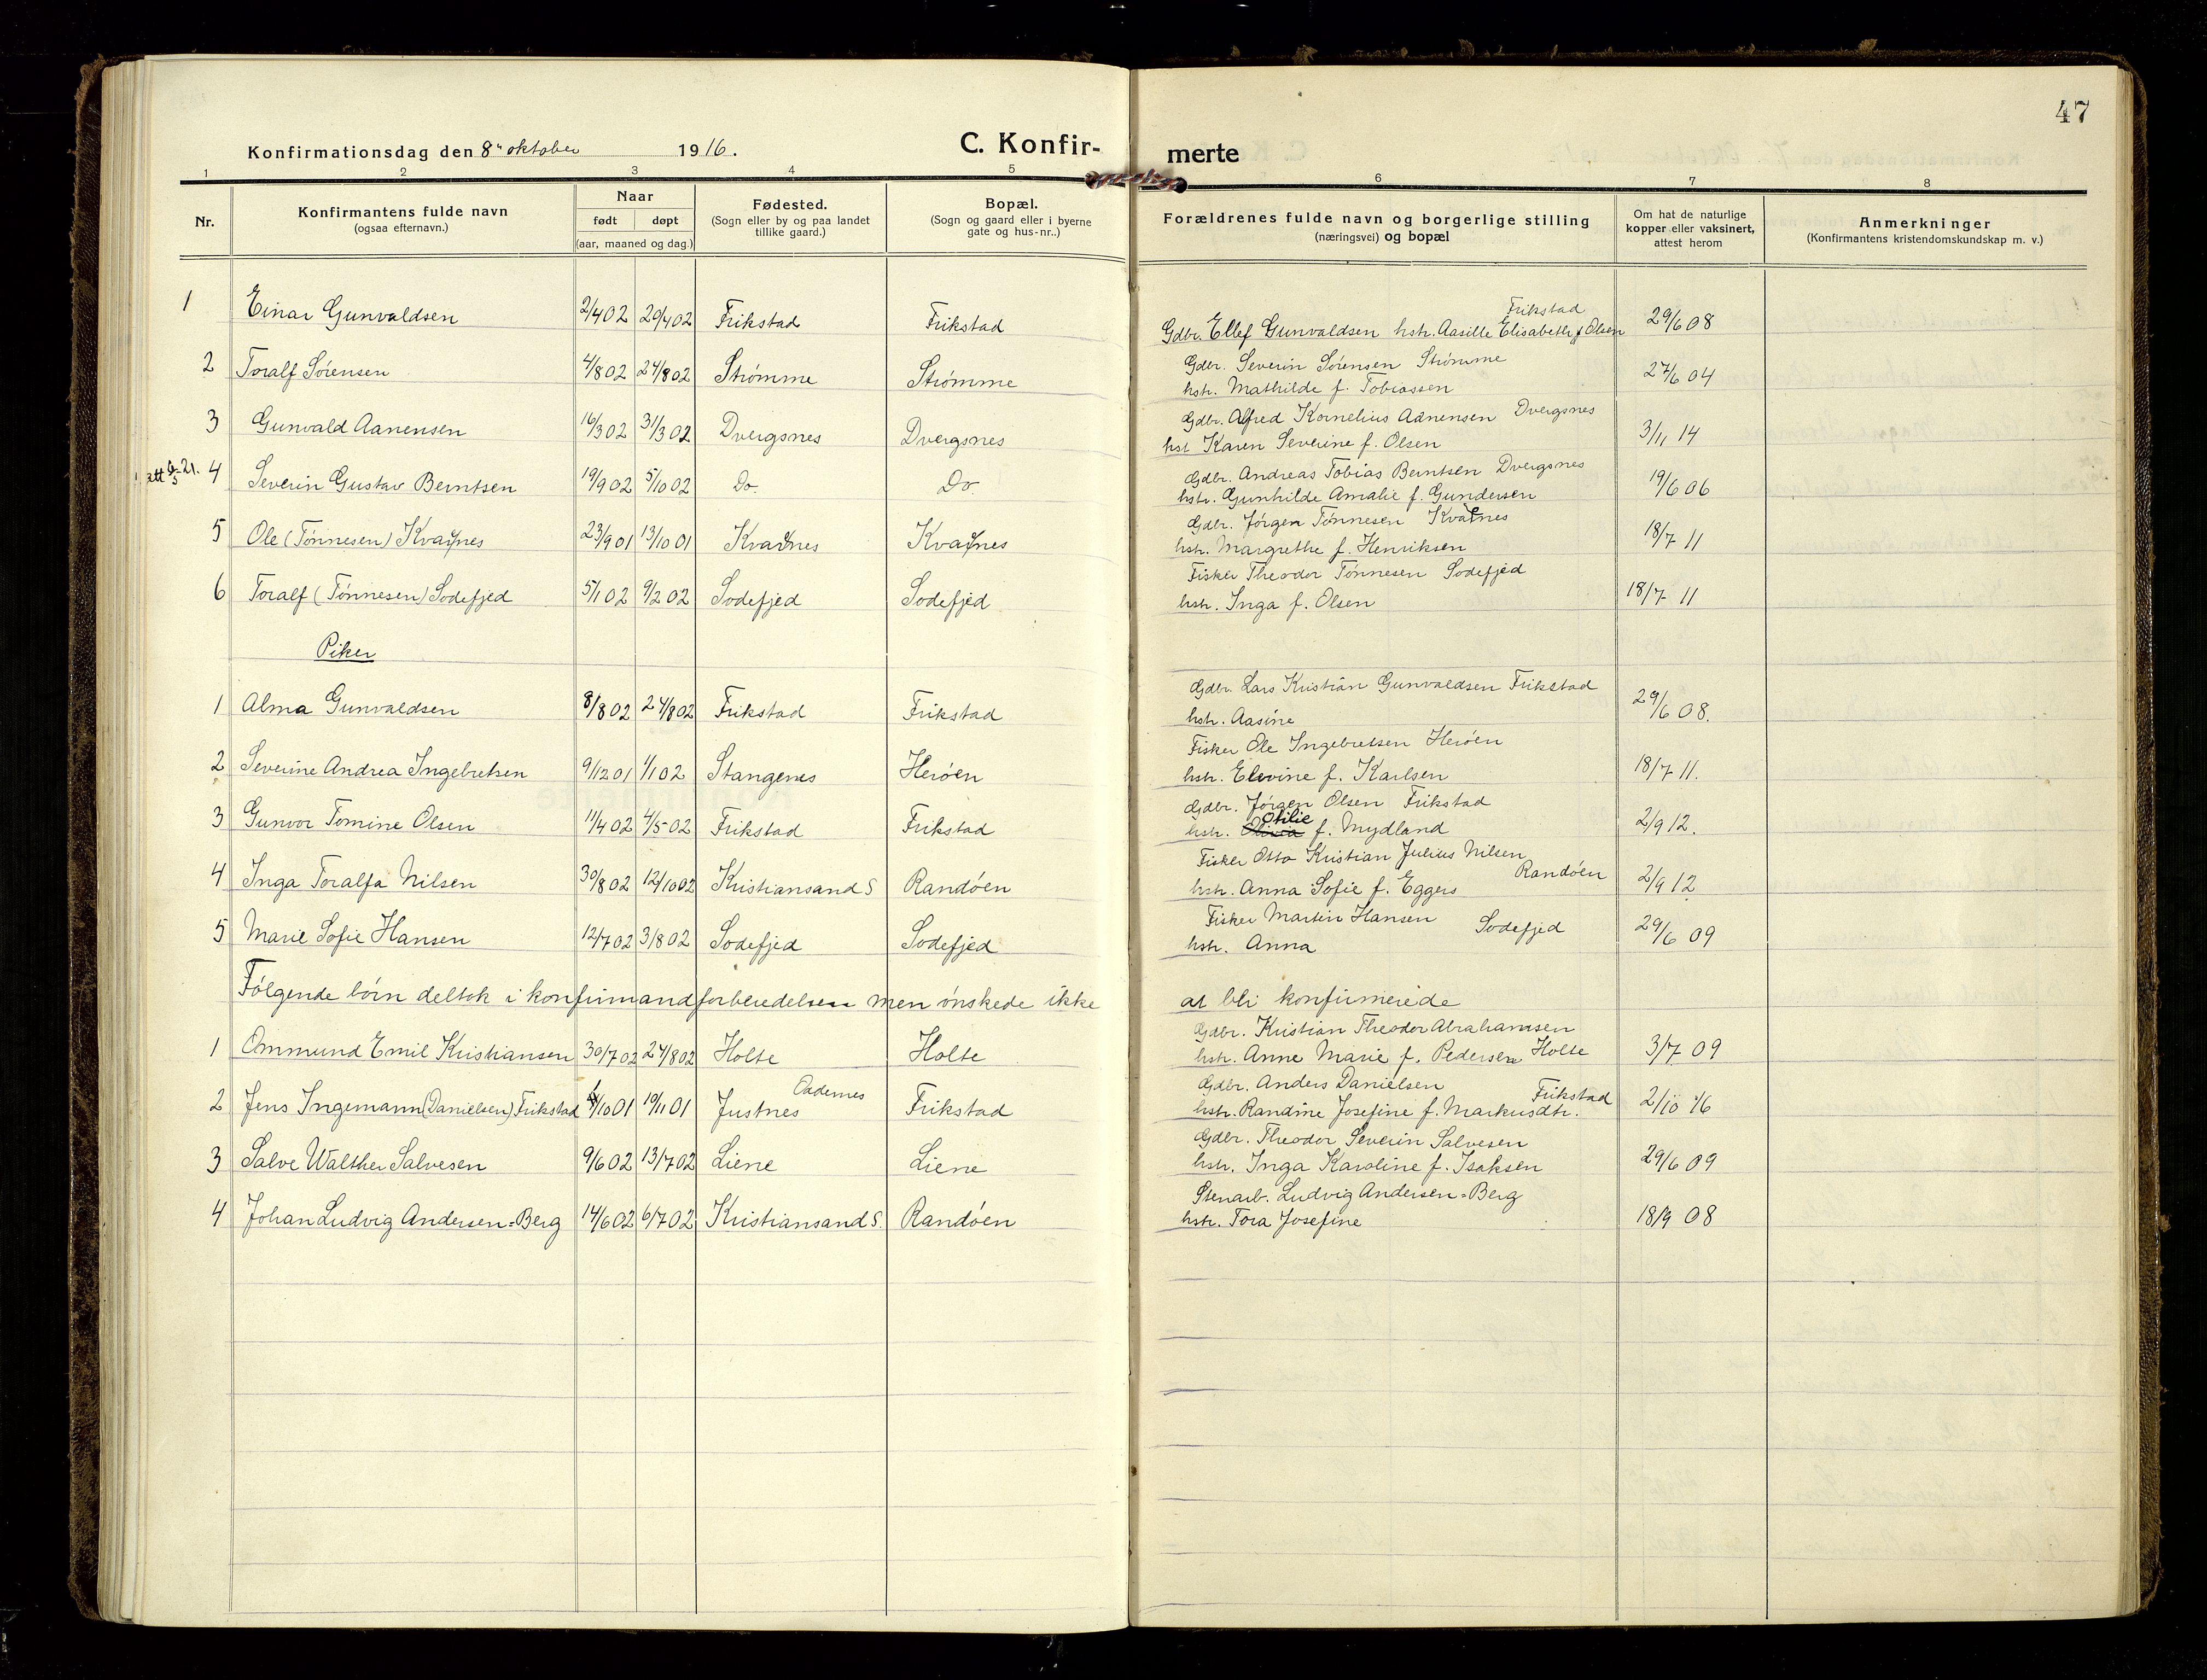 47
Konfirmationsdag den 8de oktober 1916.
C. Konfir-
merte
1 2 3 4 5 6 7 8
Nr.
Konfirmantens fulde navn
(ogsaa efternavn.)
Naar
født døpt
(aar, maaned og dag.)
Fødested.
(Sogn eller by og paa landet
tillike gaard.)
Bopæl.
(Sogn og gaard eller i byerne
gate og hus-nr..)
Forældrenes fulde navn og borgerlige stilling
(næringsvei) og bopæl
Om hat de naturlige
kopper eller vaksinert,
attest herom
Anmerkninger
(Konfirmantens kristendomskundskap m. v.)
Frikstad
1 Einar Gunvaldsen 2/4 02 20/4 02 Frikstad Frikstad Gdbr. Ellef Gunvaldsen hstr. Aasille Elisabeth f Olsen 29/6 08
Gdbr. Severin Sørensen Strømme
2 Toralf Sørensen 4/8 02 24/8 02 Strømme Strømme hstr. Mathilde f. Tobiassen 27/6 04
Gdbr. Alfred Kornelius Aanensen Dvergsnes
3 Gunvald Aanensen 16/3 02 31/3 02 Dvergsnes Dvergsnes hst Karen Severine f. Olsen 3/11 14
Gdbr. Andreas Tobias Berntsen Dvergsnes
att 4 Severin Gustav Berntsen 19/9 02 5/10 02 Do. Do. hstr. Gunhilde Amalie f. Gundersen 19/6 06
Gdbr. Jørgen Tønnesen Kvarnes
5 Ole (Tønnesen) Kvarnes 23/9 01 13/10 01 Kvarnes Kvarnes hstr. Margrethe f. Henriksen 18/7 11
Fisker Theodor Tønnesen Sodefjed
6 Toralf (Tønnesen) Sodefjed 5/1 02 9/2 02 Sodefjed Sodefjed hstr. Inga f. Olsen 18/7 11
Piker
Gdbr. Lars Kristian Gunvaldsen Frikstad
1 Alma Gunvaldsen 8/8 02 24/8 02 Frikstad Frikstad hstr. Aasine 29/6 08.
Fisker Ole Ingebretsen Herøen
2 Severine Andrea Ingebretsen 9/12 01 1/1 02 Stangenes Herøen hstr. Elevine f. Karlsen 18/7 11.
Gdbr. Jørgen Olsen Frikstad
Otilie
3 Gunvor Tomine Olsen 11/4 02 4/5 02 Frikstad Frikstad hstr. Olivia f. Mydland 2/9 12.
Fisker Otto Kristian Julius Nilsen
Randøen
4 Inga Toralfa Nilsen 30/8 02 12/10 02 Kristiansand S Randøen hstr. Anna Sofie f. Eggers 2/9 12.
Fisker Martin Hansen Sodefjed
5 Marie Sofie Hansen 12/7 02 3/8 02 Sodefjed Sodefjed hstr. Anna 29/6 09
Følgende børn deltok i konfirmandforberedelsen men ønskede ikke at bli konfirmerede
Gdbr. Kristian Theodor Abrahamsen
1 Ommund Emil Kristiansen 30/7 02 24/8 02 Holte Holte hstr. Anne Marie f. Pedersen Holte 3/7 09
Oddernes Gdbr. Anders Danielsen Frikstad
2 Jens Ingemann (Danielsen) Frikstad /10 01 10/11 01 Justnes Frikstad hstr. Randine Josefine f. Markusdtr. 2/10 16
Gdbr. Theodor Severin Salvesen
3 Salve Walther Salvesen 9/6 02 13/7 02 Liene Liene hstr. Inga Karoline f. Isaksen 29/6 09
Stenarb. Ludvig Andersen=Berg
4 Johan Ludvig Andersen=Berg 14/6 02 6/7 02 Kristiansand S. Randøen hstr. Tora Josefine 18/9 08